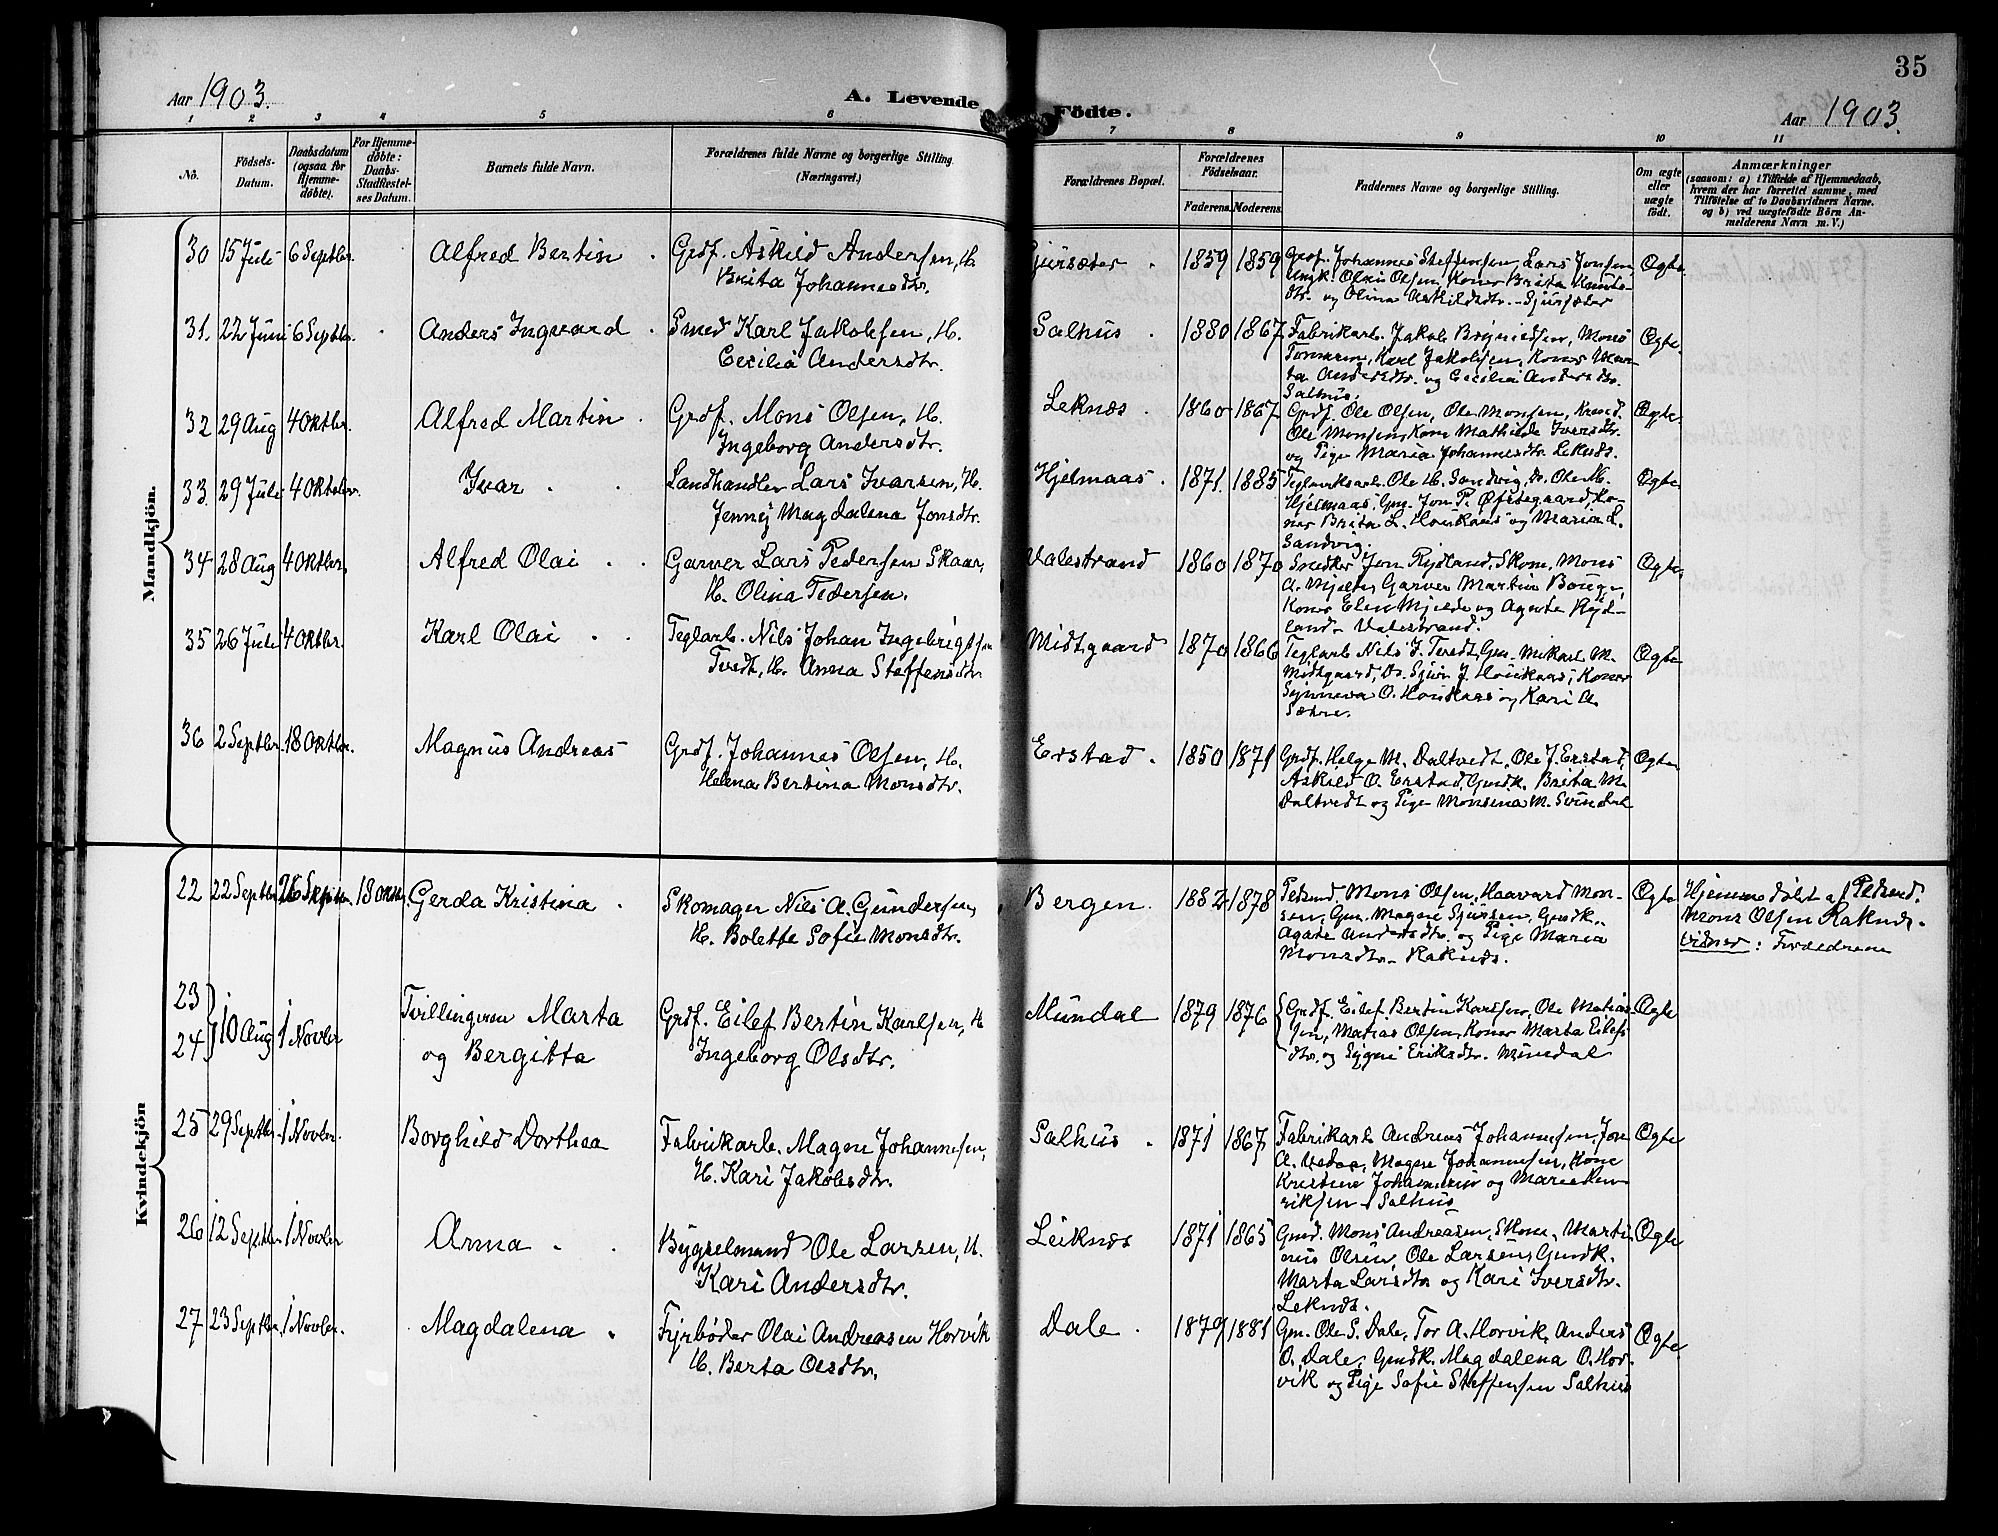 35
Aar 1903.
A. Levende Födte.
Aar 1903.
1 2 3 4 5 6 7 8 9 10 11
No.
Födsels-Datum.
Daabsdatum (ogsaa for Hjemme-döbte).
For Hjemme-döbte: Daabs-Stadfæstel-ses Datum.
Barnets fulde Navn.
Forældrenes fulde Navne og borgerlige Stilling. (Næringsvei.)
Forældrenes Bopæl.
Forældrenes Födselsaar.
Faderens. Moderens.
Faddernes Navne og borgerlige Stilling.
Om ægte eller uægte födt.
Anmærkninger
(saasom: a) i Tilfælde af Hjemmedaab, hvem der har forrettet samme, med Tilföielse af to Daabsvidners Navne. og b) ved uægtefödte Börn Anmelderens Navn m. V.)
Mandkjön.
30 15 Juli 6 Septbr. Alfred Bertin Grdf. Askild Andersen, H. 1859 1859 Grdf. Johannes Steffensen, Lars Jonsen, Ægte
Brita Johannesdtr. Olai Olsen, Koner Brita
dtr. og Olina Askildsdtr. Sjursæter
31. 22 Juni 6 Septbr. Anders Ingvard Smed Karl Jakobsen, H. Salhus 1880 1867 Fabrikarb. Jakob Mons Ægte.
Cecilia Andersdtr. Karl Jakobsen, Koner
Andersdtr. og Cecilia Andersdtr.
Salhus.
32 29 Aug 4 Oktbr. Alfred Martin Grdf. Mons Olsen, H. Leknæs 1860 1867 Grdf. Ole Olsen, Ole Monsen, Ægte.
Ingeborg Andersdtr. Ole Monsen, Kone Mathilde Iversdtr.
og Pige Maria Johannesdtr. Leknæs.
33. 29 Juli 4 Oktbr. Ivar Landhandler Lars Ivarsen, H. Hjelmaas 1871. 1885 Teglverksarb. Ole H. Sandvig, Do. Ole M. Ægte
Jenney Magdalena Jonsdtr. Hjelmaas, Gm. Jon P. Ko-
ner Brita L. og Maria L.
Sandvig.
34 28 Aug 4 Oktbr. Alfred Olai Garver Lars Pedersen Skaar, Valestrand 1860 1870 Snedker Jon Rydland, Skom. Mons Ægte,
H. Olina Pedersen. A. Mjelde, Garver Martin
Koner Elen Mjelde og Agate Ryd-
land. Valestrand.
35 26 Juli 4 Oktbr. Karl Olai Teglarb. Nils Johan Ingebrigtsen Midtgaard 1870 1866 Teglarb. Nils J. Tvedt, Gm. Mikael M. Ægte
Tvedt, H. Anna Steffensdtr. Midtgaard, Do. Sjur J. Koner
Synneva O. og Kari A.
Sætre.
36 2 Septbr. 18 Oktbr. Magnus Andreas Grdf. Johannes Olsen, H. Erstad. 1850 1871 Grdf. Helge M. Daltvedt, Ole J. Erstad, Ægte
Helena Bertina Monsdtr. Askild O. Erstad, Gmdk. Brita M.
Daltvedt og Pige Monsina M. Svindal
Kvindekjön
22 22 Septbr. 26 Septbr. 18 Oktbr. Gerda Kristina Skomager Nils A. Gundersen, Bergen. 1882 1878 Pedsmd. Mons Olsen, Haavard Mon- Ægte Hjemmedøbt af Pedsmd.
H. Bolette Sofie Monsdtr. sen, Gm. Magne Sjursen, Gmdk. Mons Olsen Raknæs.
Agate Andersdtr. og Pige Maria Vidner: Forældrene
Monsdtr. Raknæs.
23
24 } 10 Aug 1 Novbr Tvillingerne Marta Grdf. Eilef Bertin Karlsen, H. Mundal 1879 1876 Grdf. Eilef Bertin Karlsen, Ole Matias- Ægte
og Bergitta Ingeborg Olsdtr. sen, Matias Olsen, Koner Marta Eilefs-
dtr. og Eriksdtr. Mundal
25 29 Septbr. 1 Novbr. Borghild Dorthea Fabrikarb. Magne Johannesen, Salhus 1871 1867 Fabrikarb. Andreas Johannesen, Jon Ægte
H. Kari Jakobsdtr. A. Magne Johannesen, Kone
Kristine Johannesen og Marie Hen-
riksen. Salhus
26 12 Septbr. 1 Novbr Anna Bygselmand Ole Larsen, H. Leiknæs 1871 1865 Gmd. Mons Andreasen, Skom. Marti- Ægte
Kari Andersdtr. nus Olsen, Ole Larsen, Gmdk.
Marta Larsdtr og Kari Iversdtr.
Leknæs.
27 23 Septbr. 1 Novbr. Magdalena Fyrbøder Olai Andreasen Horvik Dale 1879 1881 Gm. Ole S. Dale, Tor A. Horvik, Anders Ægte
H. Berta Olsdtr. O. Dale, Gmdk. Magdalena O. Hor-
vik og Pige Sofie Steffensen Salhus